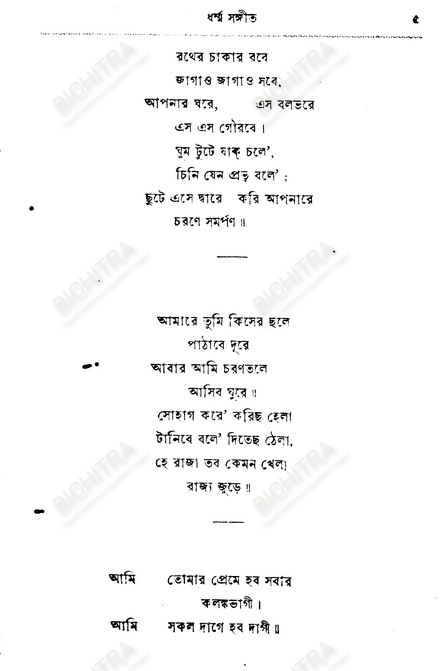 ধর্ম্ম সঙ্গীত ৫
রথের চাকার রবে
জাগাও জাগাও সবে,
আপনার ঘরে, এস বলভরে
এস এস গৌরবে।
ঘুম টুটে যাক্ চলে’,
চিনি যেন প্রভু বলে’ ;
ছুটে এসে দ্বারে করি আপনারে
চরণে সমর্পণ॥
আমারে তুমি কিসের ছলে
পাঠাবে দূরে
আবার আমি চরণতলে
আসিব ঘুরে॥
সোহাগ করে’ করিছ হেলা
টানিবে বলে’ দিতেছ ঠেলা,
হে রাজা তব কেমন খেলা
রাজ্য জুড়ে॥
আমি তোমার প্রেমে হব সবার
কলঙ্কভাগী।
আমি সকল দাগে হব দাগী॥
BICHITRA
BICHITRA
BICHITRA
BICHITRA
BICHITRA
BICHITRA
BICHITRA
BICHITRA